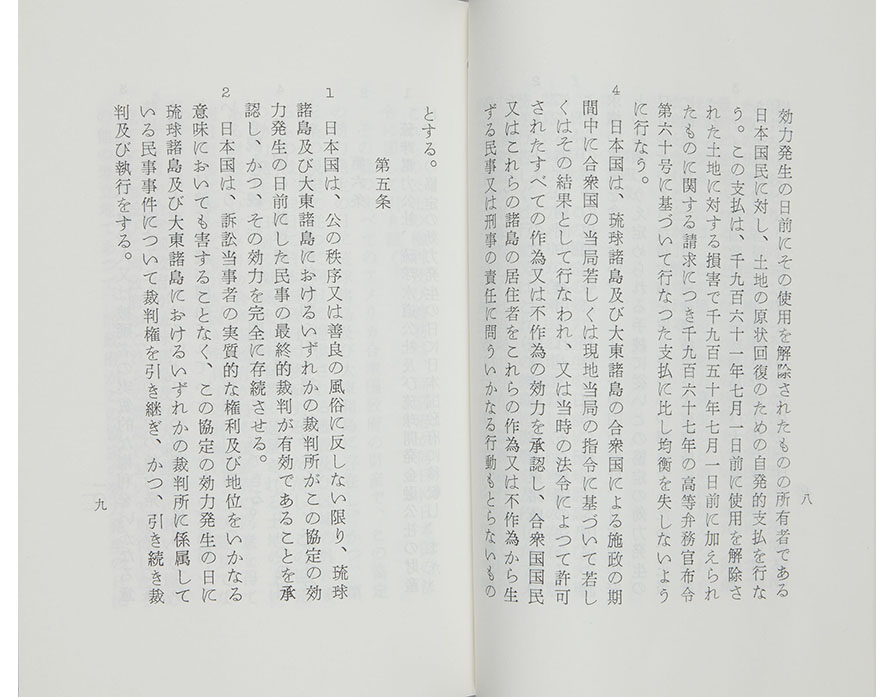 効力発生の日前にその使用を解除されたものの所有者である
日本国民に対し、土地の原状回復のための自発的支払を行な
う。この支払は、千九百六十一年七月一日前に使用を解除さ
れた土地に対する損害で千九百五十年七月一日前に加えられ
たものに関する請求につき千九百六十七年の高等弁務官布令
第六十号に基づいて行なつた支払に比し均衡を失しないよう
に行なう。
4 日本国は、琉球諸島及び大東諸島の合衆国による施政の期
間中に合衆国の当局若しくは現地当局の指令に基づいて若し
くはその結果として行なわれ、又は当時の法令によつて許可
されたすべての作為又は不作為の効力を承認し、合衆国国民
又はこれらの諸島の居住者をこれらの作為又は不作為から生
ずる民事又は刑事の責任に問ういかなる行動もとらないもの
八
とする。
第五条
1 日本国は、公の秩序又は善良の風俗に反しない限り、琉球
諸島及び大東諸島におけるいずれかの裁判所がこの協定の効
力発生の日前にした民事の最終的裁判が有効であることを承
認し、かつ、その効力を完全に存続させる。
2 日本国は、訴訟当事者の実質的な権利及び地位をいかなる
意味においても害することなく、この協定の効力発生の日に
琉球諸島及び大東諸島におけるいずれかの裁判所に係属して
いる民事事件について裁判権を引き継ぎ、かつ、引き続き裁
判及び執行をする。
九